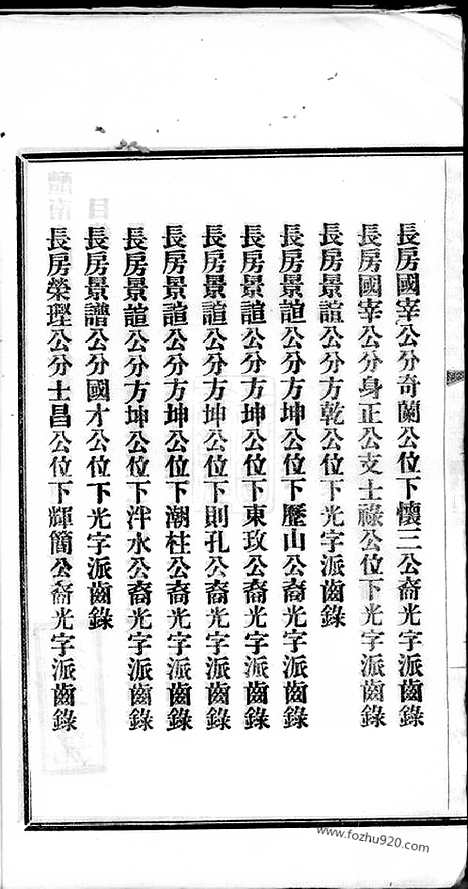 長房國宰公分奇蘭公位下懷三公裔光字派齒錄
長房國宰公分身正公支士祿公位下光字派齒錄
長房景諠公分方乾公位下光字派齒錄
長房景諠公分方坤公位下歷山公裔光字派齒錄
長房景諠公分方坤公位下東玫公裔光字派齒錄
長房景諠公分方坤公位下則孔公裔光字派齒錄
長房景諠公分方坤公位下潮柱公裔光字派齒錄
長房景諠公分方坤公位下泮水公裔光字派齒錄
長房景譜公分國才公位下光字派齒錄
長房榮㻫公分士昌公位下輝簡公裔光字派齒錄
www.fozhu920.com